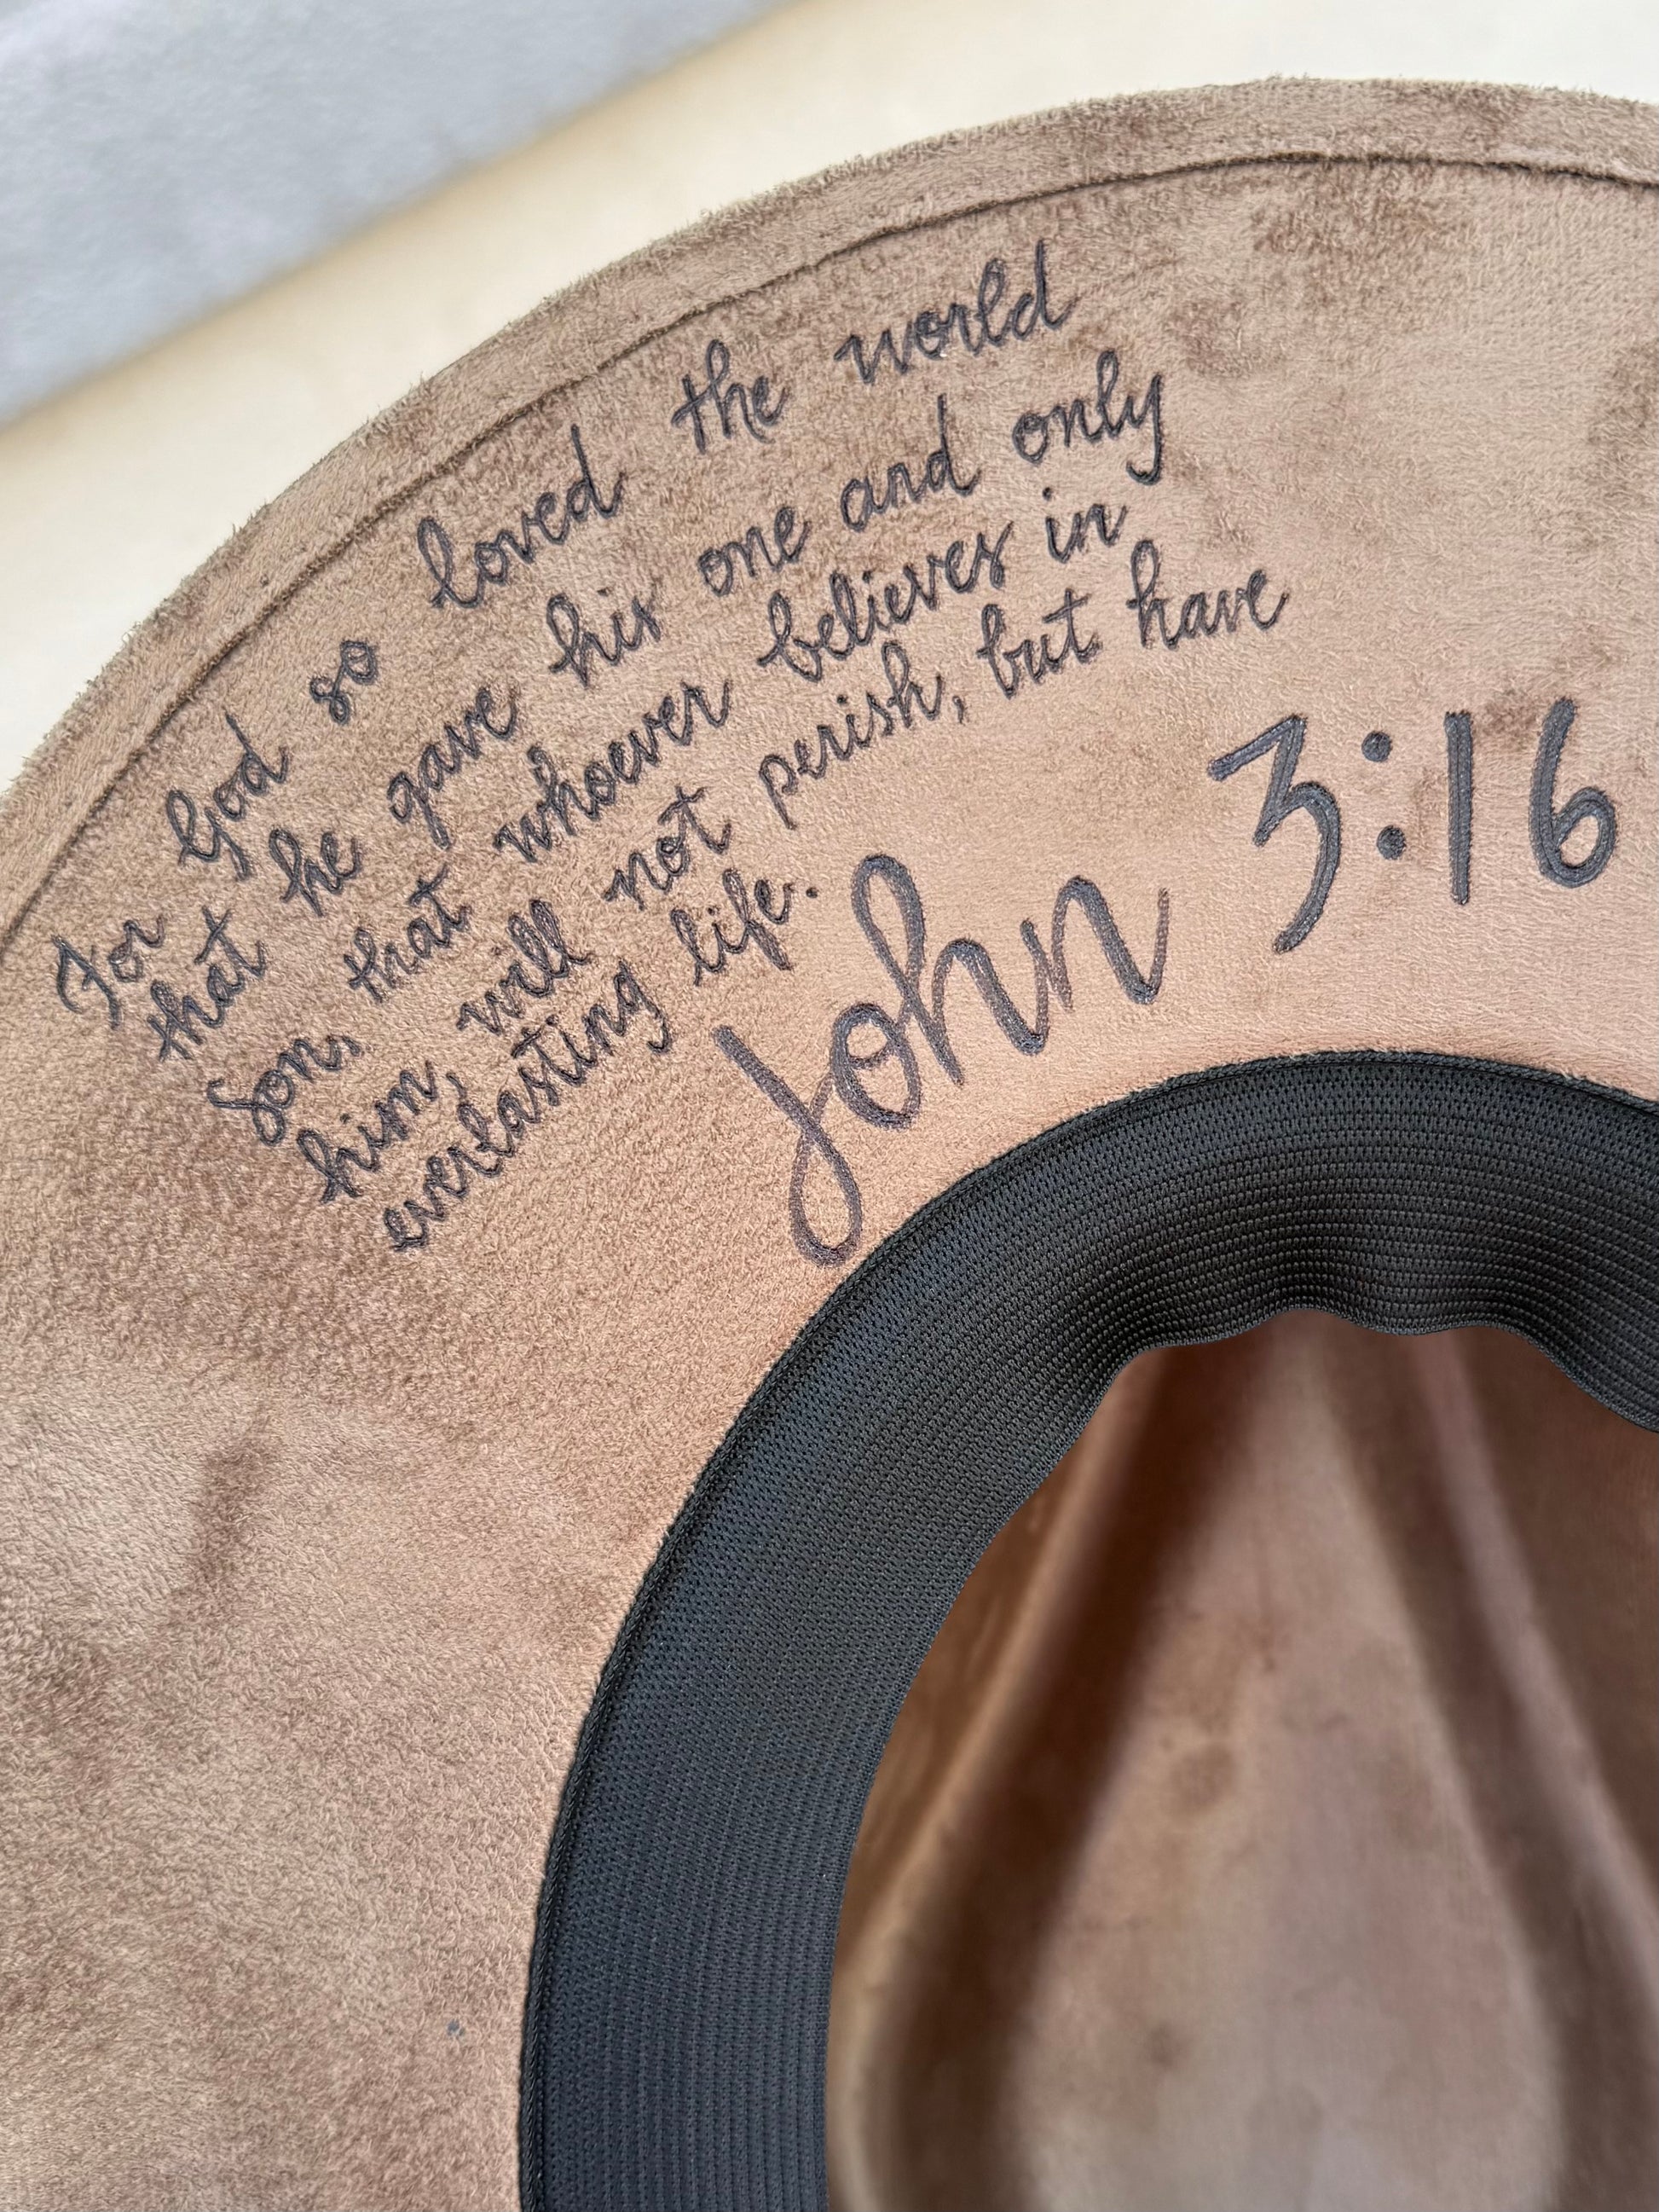 For God so loved the world
that he gave his one and only
Son, that whoever believes in
him, will not perish, but have
everlasting life.
John 3:16